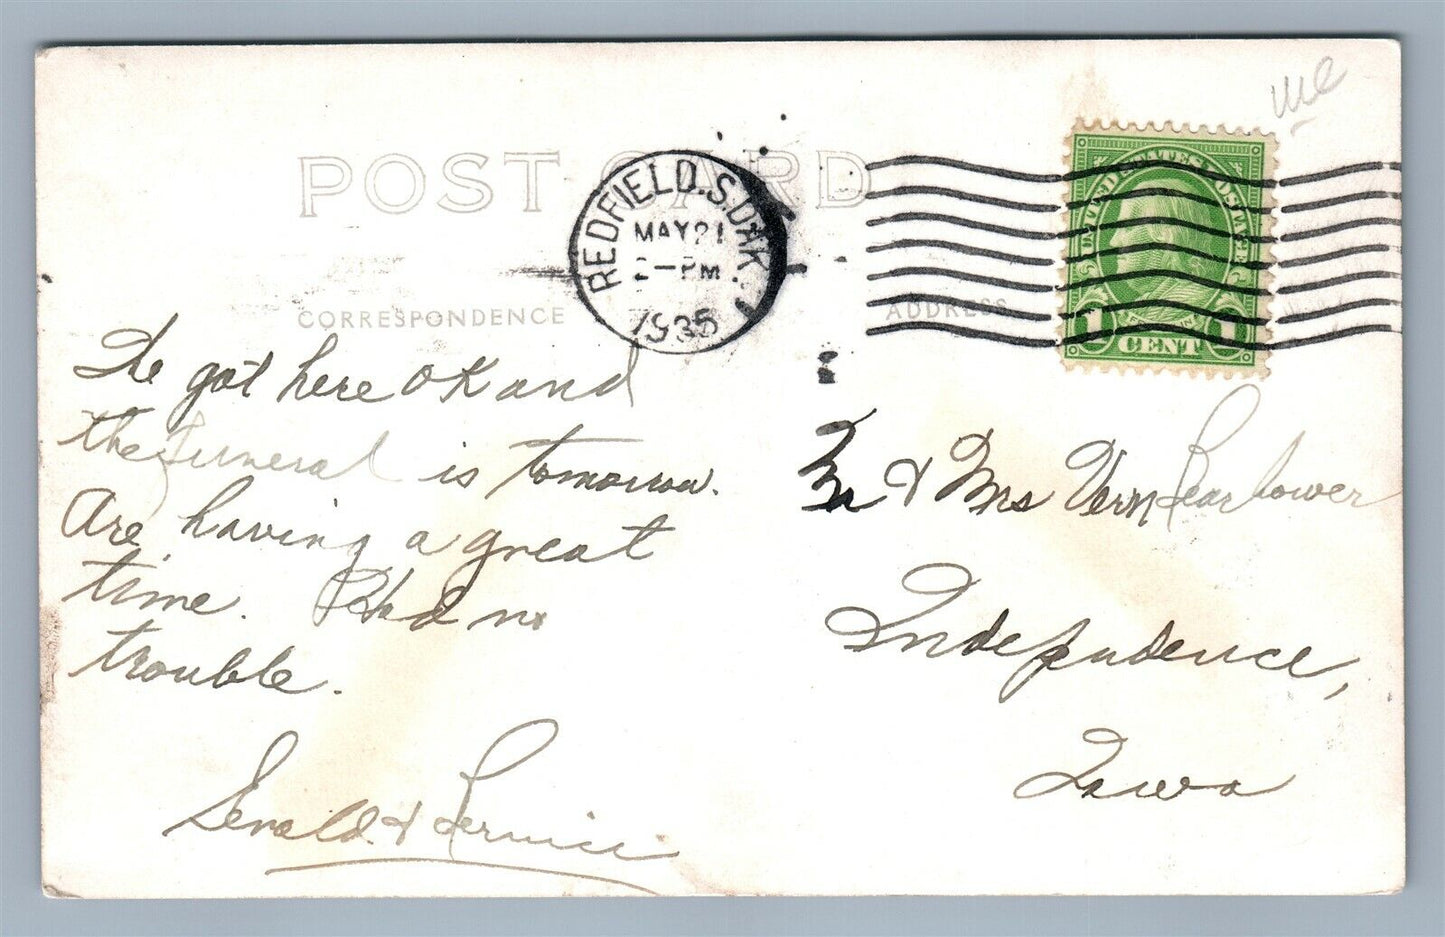 me
POST CARD
REDFIELD. S. DAK.
MAY 21
2-PM
1935
UNITED STATES POSTAGE
1 CENT 1
CORRESPONDENCE
ADDRESS
We got here OK and
the funeral is tomorrow.
Are having a great
time. Had no
trouble.
Gerald & Bernice
Mr & Mrs Vern
Independence,
Iowa